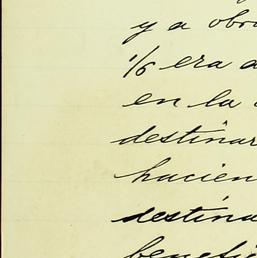 y a obra
1/6 era a
en la
destinar
hacien
destina
benefic